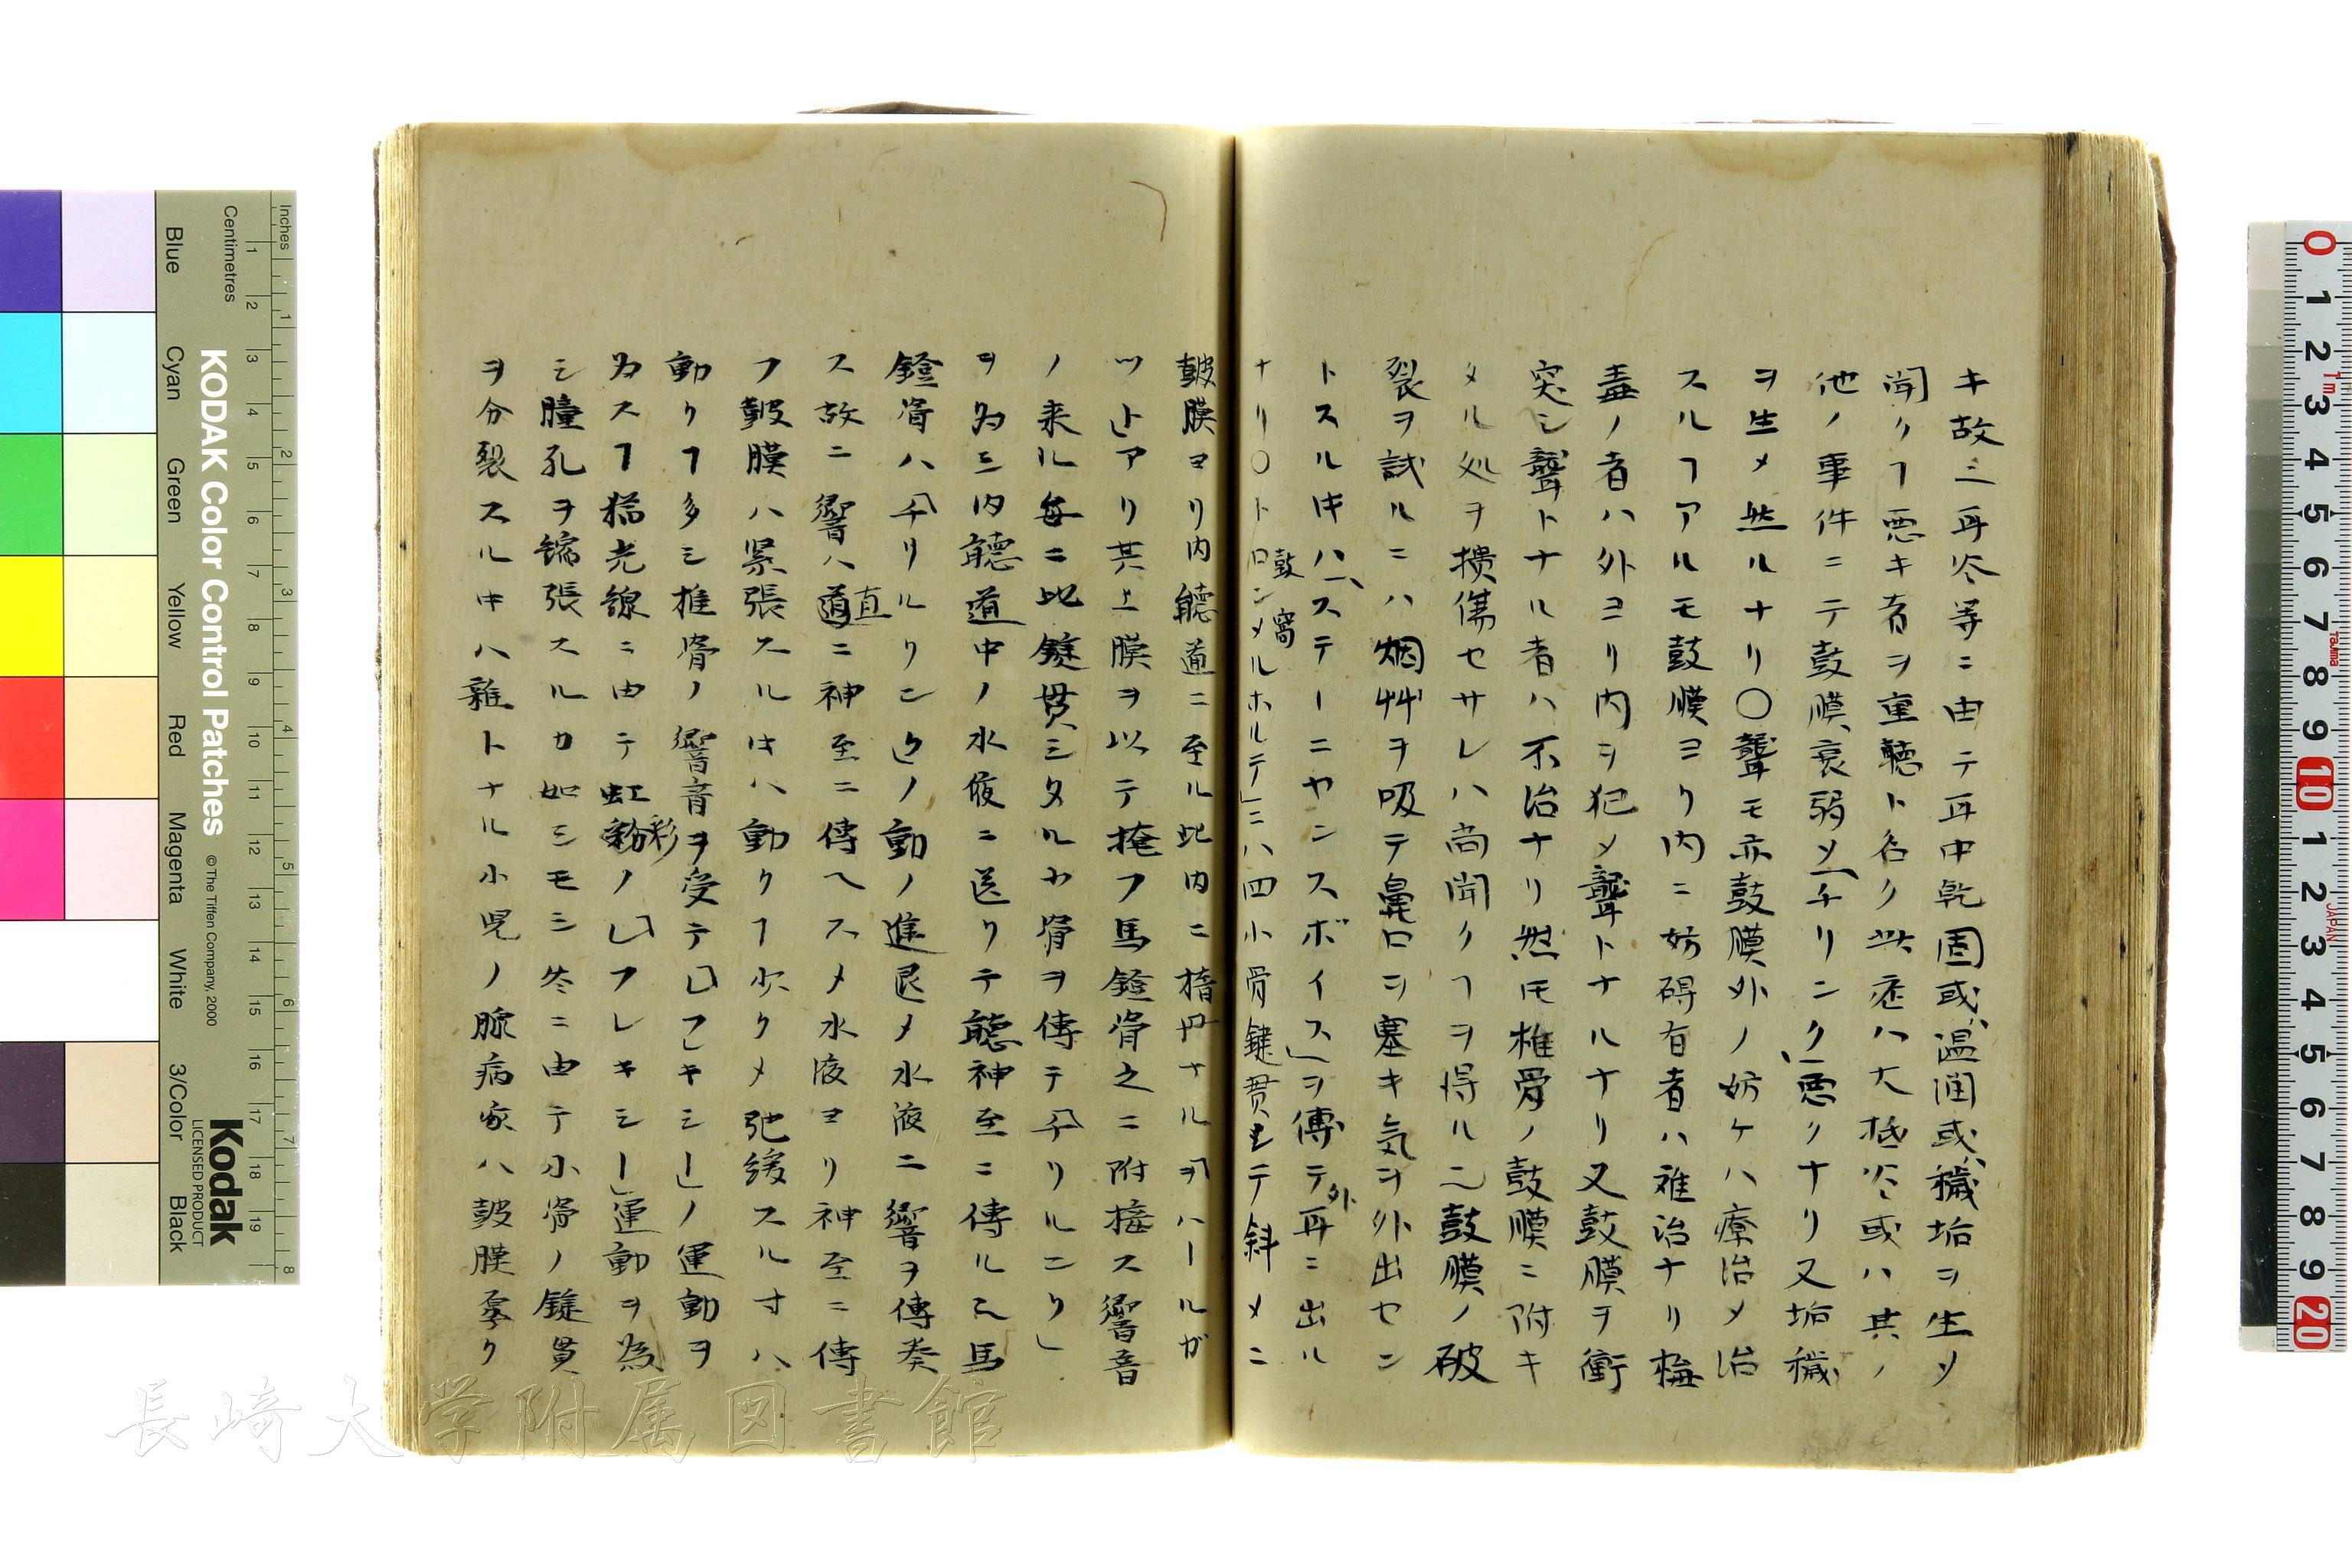 キ故ニ耳冷等ニ由テ耳中乾固或温潤或穢垢ヲ生ソ
聞クヿ悪キ者ヲ重聴ト名ク此症ハ大抵冷或ハ其ノ
他ノ事件ニテ鼓膜衰弱ソ「チリンク」悪クナリ又垢穢
ヲ生メ然ルナリ〇聾モ亦鼓膜外ノ妨ケハ療治メ治
スルヿアルモ鼓膜ヨク内ニ妨碍有者ハ難治ナリ梅
毒ノ者ハ外ヨリ内ヲ犯メ聾トナルナリ又鼓膜ヲ衝
突シ聾トナル者ハ不治ナリ然モ椎骨ノ鼓膜ニ附キ
タル処ヲ損傷セサレハ尚聞クヿヲ得ル鼓膜ノ破
裂ヲ試ルニハ烟艸ヲ吸テ鼻口ヲ塞キ気ヲ外出セン
トスル𪜈ハ「ステーニヤンスボイス」ヲ傳テ外耳ニ出ル
ナリ〇トロンメルホルテ」ニハ四小骨鍵貫モテ斜メニ
鼓窩
皷膜ヨリ内聴道ニ至ル此内ニ楕円ナル「ヲハールガ
ット」アリ其上膜ヲ以テ掩フ馬鐙骨之ニ附接ス響音
ノ来ル毎ニ此鍵貫シタル小骨ヲ傳テ「チリルニク」
ヲ為シ内聴道中ノ水液ニ送リテ聴神至ニ傳ル馬
鐙骨ハ「チリルリンク」ノ動ノ進退メ水液ニ響ヲ傳奏
ス故ニ響ハ道直ニ神至ニ傳ヘスメ水液ヨリ神至ニ傳
フ皷膜ハ緊張スル𪜈ハ動クヿ少クメ弛緩スル寸ハ
動クヿ多シ椎骨ノ響音ヲ受テ「レフレキシー」ノ運動ヲ
為スヿ猶光線ニ由テ虹彩ノ「レフレキシー」運動ヲ為
シ瞳孔ヲ縮張スルカ如シモシ冷ニ由テ小骨ノ鍵貫
ヲ分裂スル𪜈ハ難トナル小児ノ腺病家ハ皷膜